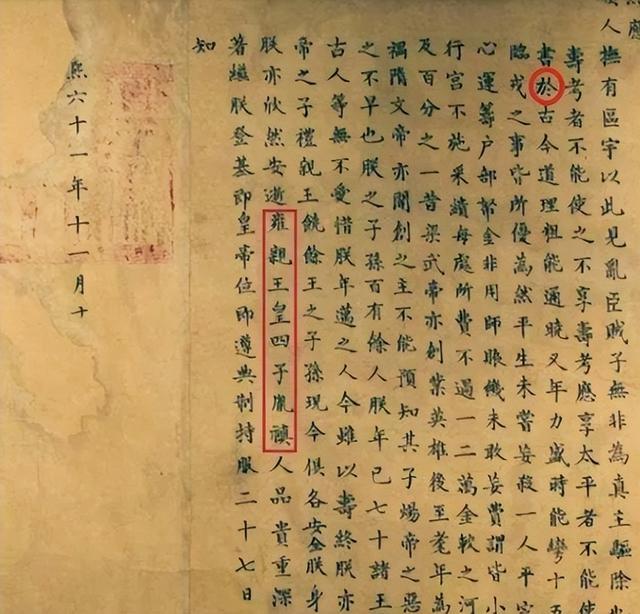 人撫有區宇以此見亂臣賊子無非為真主驅除
壽考者不能使之不享壽考應享太平者不能使
書於古今道理粗能通曉又年力盛時能彎十五
臨戎之事皆所優為然平生未嘗妄殺一人平定
心運籌户部帑金非用師賑饑未敢妄費謂皆小
行宮不施采繢每處所費不過一二萬金較之河
及百分之一昔梁武帝亦創業英雄後至耄年為
禍隋文帝亦開創之主不能預知其子煬帝之惡
之不早也朕之子孫百有餘人朕年已七十諸王
古人等無不愛惜朕年邁之人今雖以壽終朕亦
帝之子禮親王饒餘王之子孫現今俱各安全朕身
朕亦欣然安逝雍親王皇四子胤禛人品貴重深
著繼朕登基即皇帝位即遵典制持服二十七日
知
熙六十一年十一月十